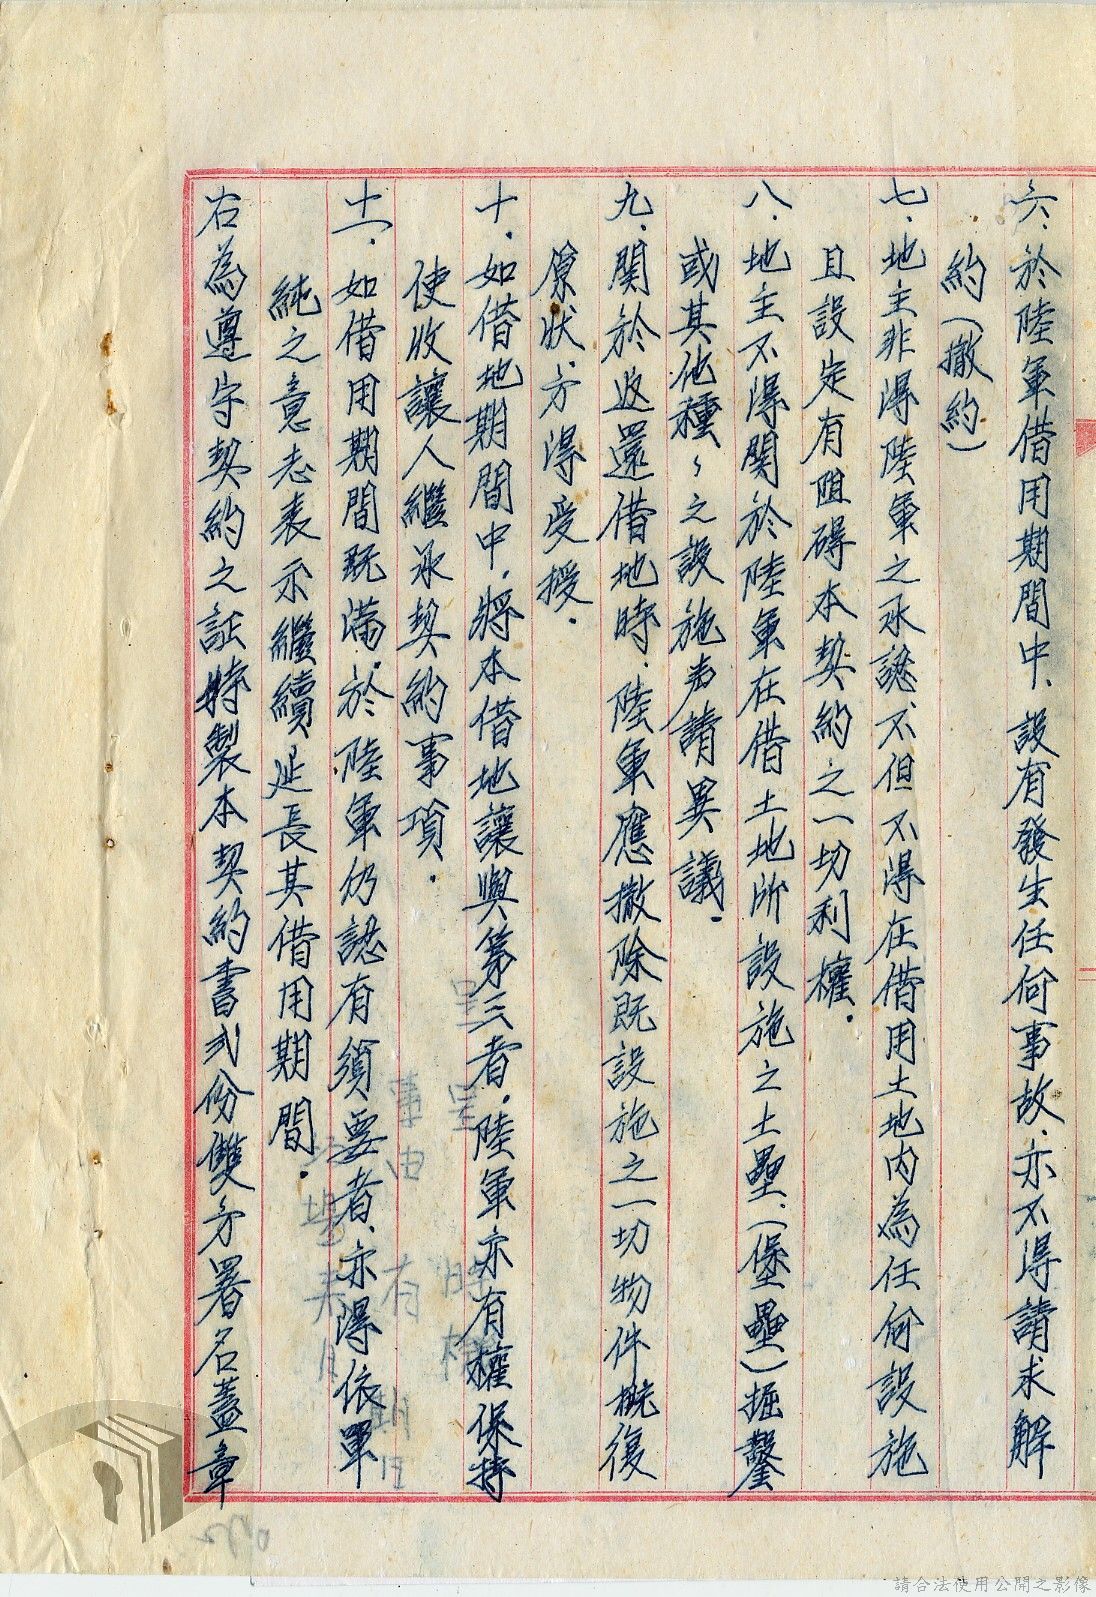 六、於陸軍借用期間中、設有發生任何事故、亦不得請求解
約(撤約)
七、地主非得陸軍之承認、不但不得在借用土地內為任何設施
且設定有阻碍本契約之一切利權.
八.地主不得関於陸軍在借土地所設施之土壘.(堡壘)掘鑿
或其他種々之設施声請異議.
九.関於返還借地時.陸軍應撤除既設施之一切物件概復
原狀、方得受授.
十.如借地期間中.將本借地讓與第三者.陸軍亦有權保持
使收讓人繼承契約事項.
十一.如借用期間既滿.於陸軍仍認有須要者、亦得依單
純之意志表示繼續延長其借用期間.
右為遵守契約之証特製本契約書弍份雙方署名蓋章
請合法使用公開之影像